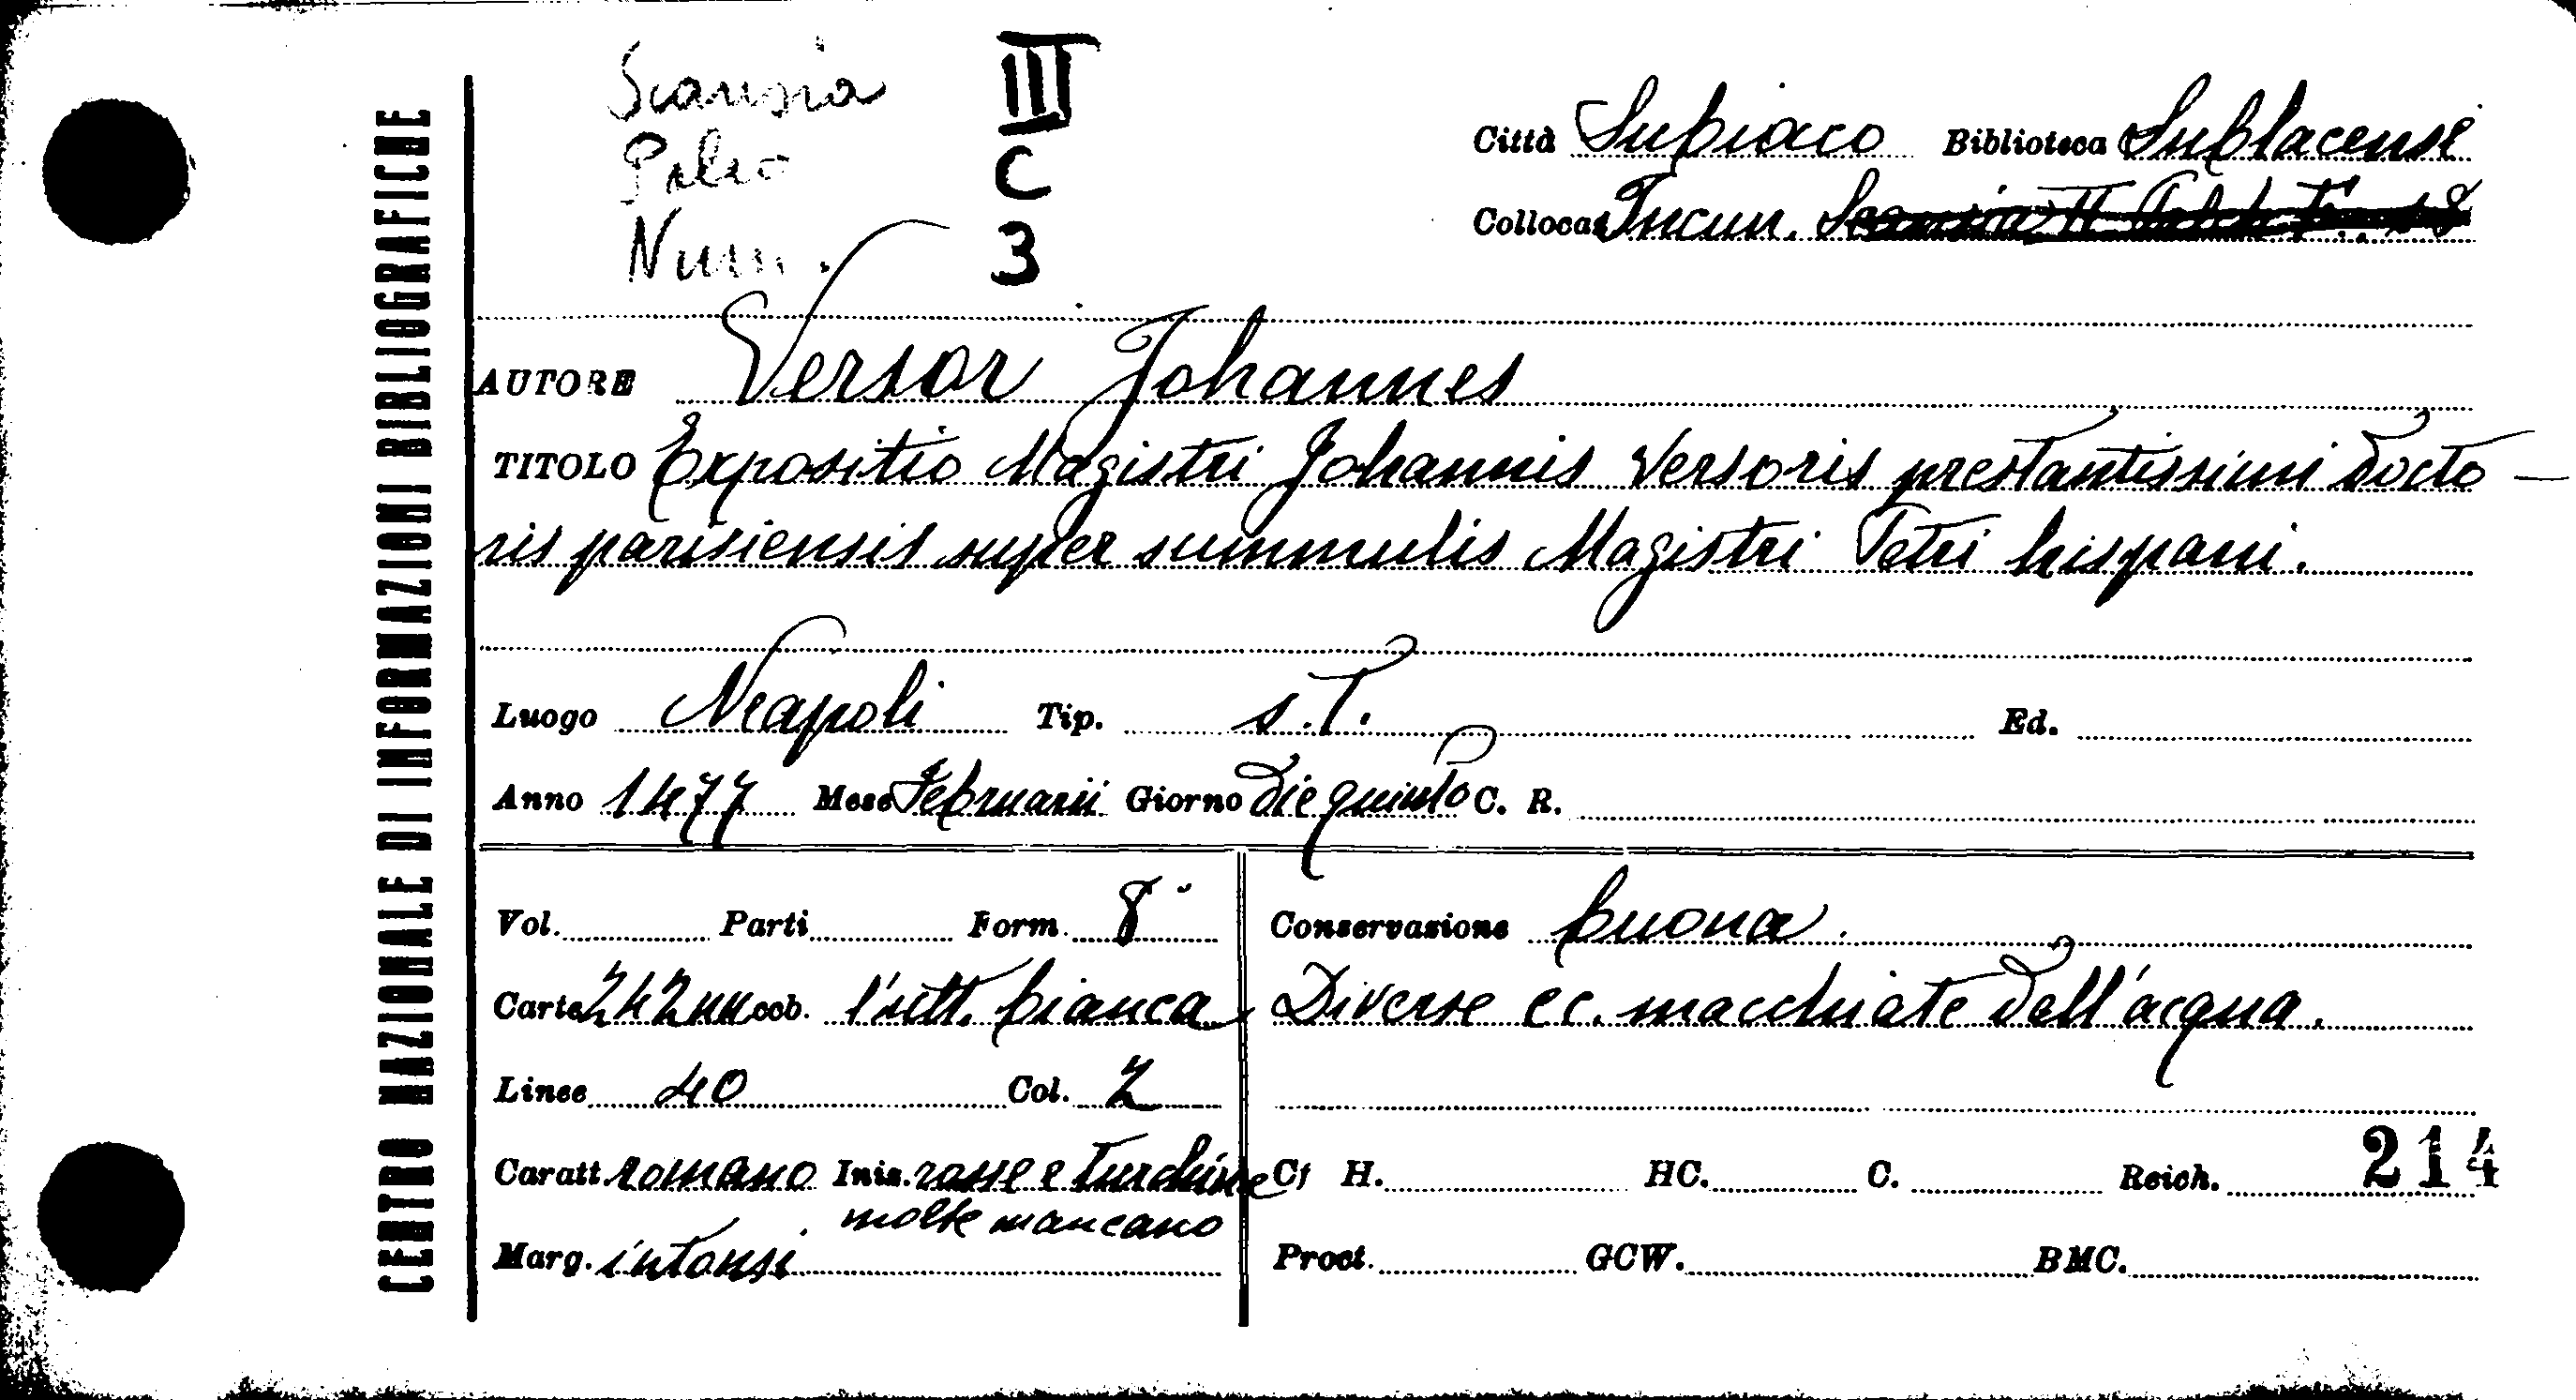 CENTRO NAZIONALE DI INFORMAZIONI BIBLIOGRAFICHE
Scansia III
Palco C
Num. 3
Città Subiaco Biblioteca Sublacense
Collocaz Incun. Scansia II
AUTORE Versor Johannes
TITOLO Expositio Magistri Johannis Versoris prestantissimi docto-
ris parisiensis super summulis Magistri Petri hispani.
Luogo Neapoli Tip. s.T. Ed.
Anno 1477 Mese Februarii Giorno die quinto C. R.
Vol. Parti Form. 8° Conservazione buona.
Carte 242 nn ccb. l'ult. bianca Diverse cc. macchiate dell'acqua.
Linee 40 Col. 2
Caratt. romano Iniz. rosse e turchine Cf H. HC. C. Reich. 214
molte mancano
Marg. intonsi Proct. GCW. BMC.